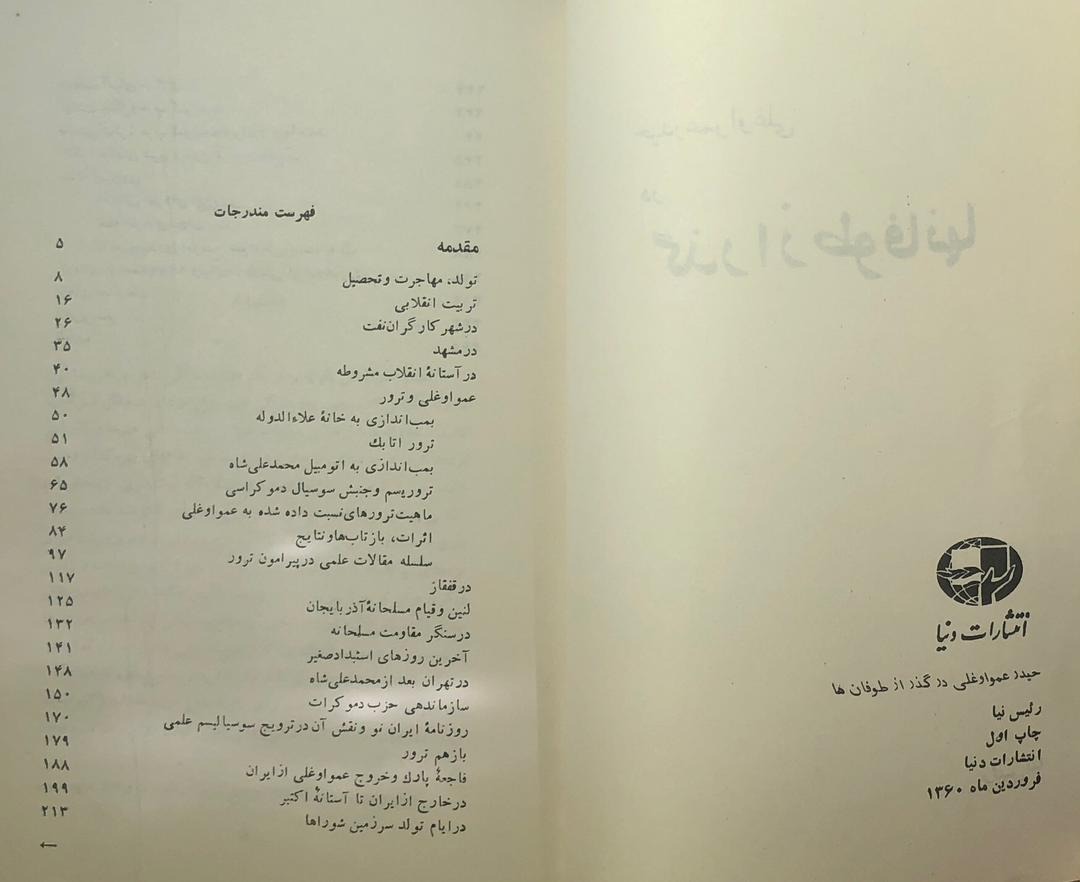 انتشارات دنیا
حیدر عمواوغلی در گذر از طوفان ها
رئیس نیا
چاپ اول
انتشارات دنیا
فروردین ماه ۱۳۶۰
فهرست مندرجات
مقدمه ۵
تولد، مهاجرت و تحصیل ۸
تربیت انقلابی ۱۶
در شهر کارگران نفت ۲۶
در مشهد ۳۵
در آستانهٔ انقلاب مشروطه ۴۰
عمواوغلی و ترور ۴۸
بمب‌اندازی به خانهٔ علاءالدوله ۵۰
ترور اتابک ۵۱
بمب‌اندازی به اتومبیل محمدعلی‌شاه ۵۸
تروریسم و جنبش سوسیال دموکراسی ۶۵
ماهیت ترورهای نسبت داده شده به عمواوغلی ۷۶
اثرات، بازتاب‌ها و نتایج ۸۴
سلسله مقالات علمی در پیرامون ترور ۹۷
در قفقاز ۱۱۷
لنین و قیام مسلحانهٔ آذربایجان ۱۲۵
در سنگر مقاومت مسلحانه ۱۳۲
آخرین روزهای استبداد صغیر ۱۴۱
در تهران بعد از محمدعلی‌شاه ۱۴۸
سازماندهی حزب دموکرات ۱۵۰
روزنامهٔ ایران نو و نقش آن در ترویج سوسیالیسم علمی ۱۷۰
بازهم ترور ۱۷۹
فاجعهٔ پارک و خروج عمواوغلی از ایران ۱۸۸
در خارج از ایران تا آستانهٔ اکتبر ۱۹۹
در ایام تولد سرزمین شوراها ۲۱۳
←